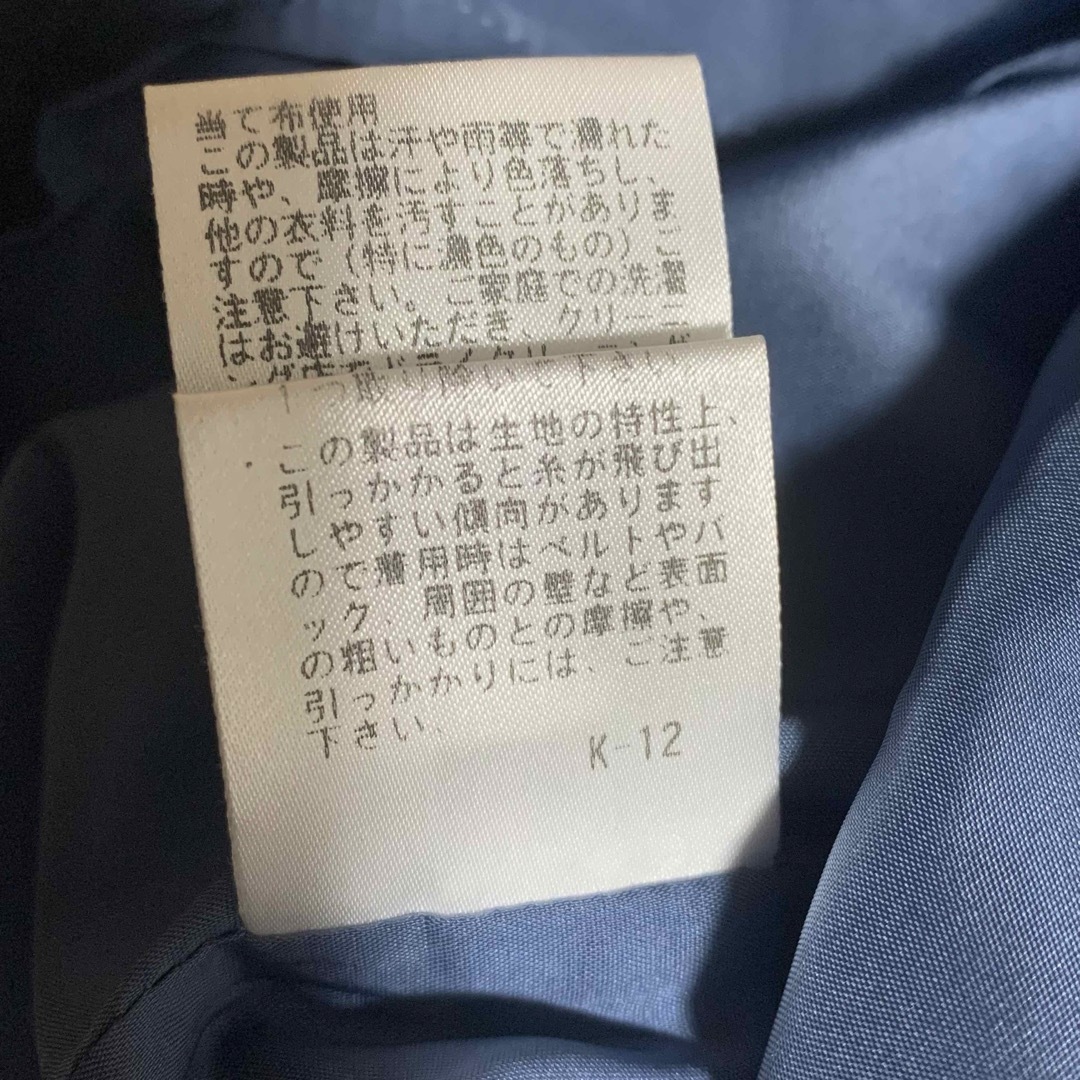 当て布使用
この製品は汗や雨等で濡れた
時や、摩擦により色落ちし、
他の衣料を汚すことがありま
すので(特に濃色のもの)ご
注意下さい。ご家庭での洗濯
はお避けいただき、クリーニ
この製品は生地の特性上、
引っかかると糸が飛び出
しやすい傾向があります
ので着用時はベルトやバ
ック、周囲の壁など表面
の粗いものとの摩擦や、
引っかかりには、ご注意
下さい、
K-12